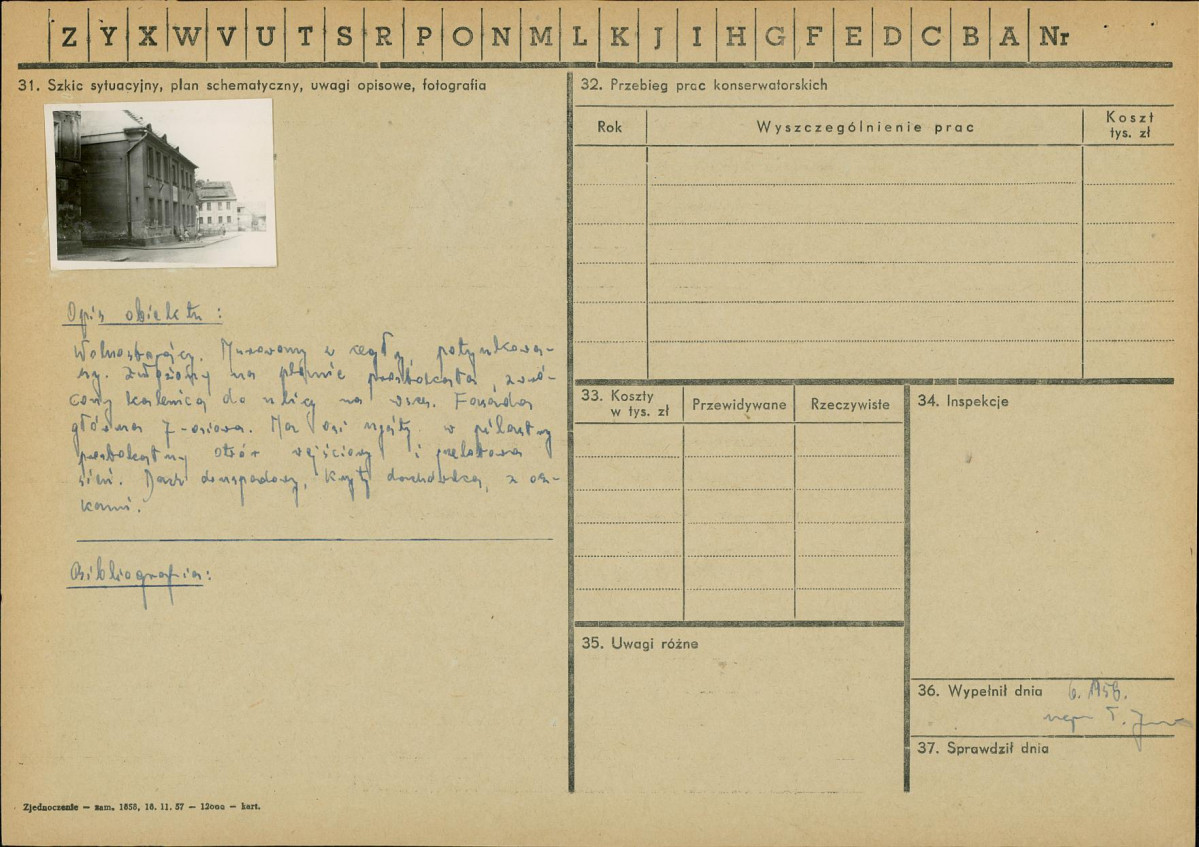 Z Y X W V U T S R P O N M L K J I H G F E D C B A Nr
31. Szkic sytuacyjny, plan schematyczny, uwagi opisowe, fotografia
Opis obiektu:
Wolnostojący. Murowany w cegły, potynkowa-
ny. Założony na planie prostokąta, zwró-
cony kalenicą do ulicy na wsch. Fasada
główna 7-osiowa. Na osi ujęty w pilastry
prostokątny otwór wejściowy i przelotowa
sień. Dach dwuspadowy, kryty dachówką, z
kami.
Bibliografia:
32. Przebieg prac konserwatorskich
Rok
Wyszczególnienie prac
Koszt
tys. zł
33. Koszty
w tys. zł
Przewidywane
Rzeczywiste
34. Inspekcje
35. Uwagi różne
36. Wypełnił dnia 6.1958.
T.
37. Sprawdził dnia
Zjednoczenie — zam. 1858, 18. 11. 57 — 12000 — kart.